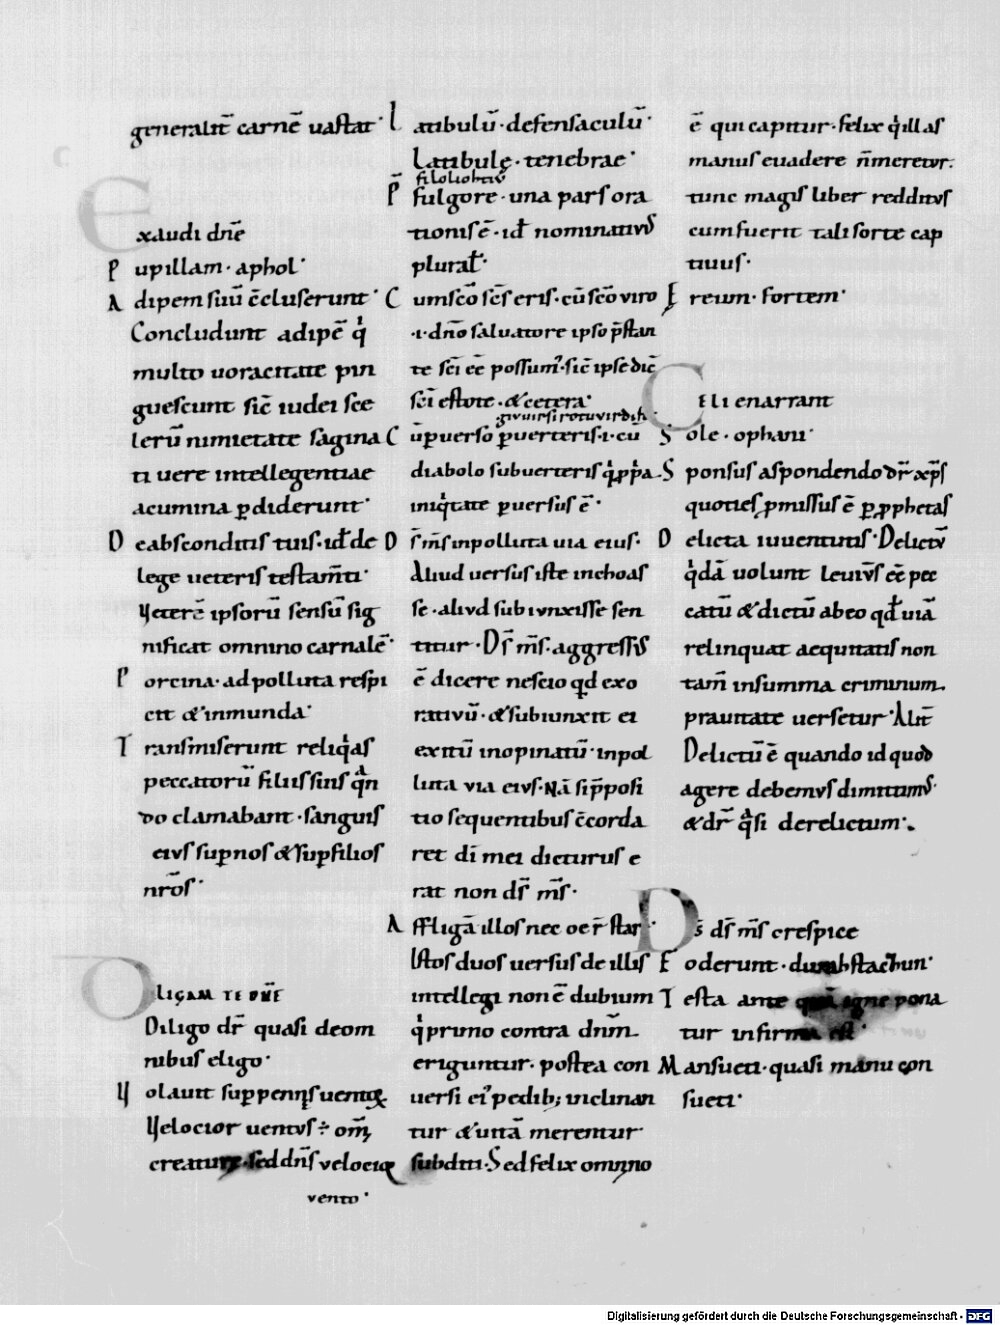 generalit̄ carnē uastat·
Exaudi dn̄e
Pupillam· aphol·
Adipem suū c̄cluserunt·
Concludunt adipē qͥ
multo uoracitate pin
guescunt sic̄ iudei sce
lerū nimietate sagina
ti uere intellegentiae
acumina ꝑdiderunt·
De absconditis tuis· id̄ de
lege ueteris testam̄ti·
Veterē ipsorū sensū sig
nificat omnino carnalē·
Porcina· ad polluta respi
cit & inmunda·
Transmiserunt reliqͥas
peccatorū filiis suis qͣn
do clamabant· sanguis
eius suꝑ nos & suꝑ filios
nr̄os·
Diligam te dn̄e
Diligo dr̄ quasi de om
nibus eligo·
Volauit suꝑ pennas
Velocior uentus ÷ om̄
creature· sed dn̄s
uento·
Latibulū· defensaculū·
Latibulę· tenebrae·
P̄ fulgore· una pars ora
tionis ē· id̄ nominatiuus
plural̄·
Cum sc̄o sc̄s eris· cū sc̄o uiro
·i· dn̄o saluatore ipso p̄stan
te sc̄i ee̅ possum᾽· sic̄ ipse dic̄
sc̄i estote· & cetera·
Cū ꝑuerso ꝑuerteris· i· cū
diabolo subuerteris
iniqͥtate ꝑuersus ē·
Ds̄ ms̄ inpolluta uia eius·
Aliud uersus iste inchoas
se· aliud subiunxisse sen
titur· Ds̄ ms̄· aggressus
ē dicere nescio qd̄ exo
ratiuū· & subiunxit ei
exitū inopinatū· inpol
luta uia eius· Nā si p̄posi
tio sequentibus c̄corda
ret di̅ mei dicturus e
rat non ds̄ ms̄·
Affligā illos nec
Istos duos uersus de illis
intellegi non ē dubium
qͥ primo contra dn̄m
eriguntur· postea con
uersi ei᾽ pedib; inclinan
tur & uitā merentur
subditi· Sed felix omnino
ē qui capitur· felix qͥ illas
manus euadere n̄ meretur·
tunc magis liber redditus
cum fuerit tali sorte cap
tiuus·
Ereum· fortem·
Celi enarrant
Sole·
Sponsus a spondendo dr̄ xp̄s
quoties ꝓmissus ē ꝑ ꝓphetas
Delicta iuuentutis· Delictū
qͥdā uolunt leuius ee̅ pec
catū & dictū ab eo qd̄ uiā
relinquat aequitatis non
tam̄ in summa criminum
prauitate uersetur· Alit̄
Delictū ē quando id quod
agere debemus dimittimus·
& dr̄ qͣsi derelictum·
Ds̄ ds̄ ms̄ respice
Foderunt·
Testa ante quā igne pona
tur infirma est·
Mansueti· quasi manu con
sueti·
Digitalisierung gefördert durch die Deutsche Forschungsgemeinschaft - DFG